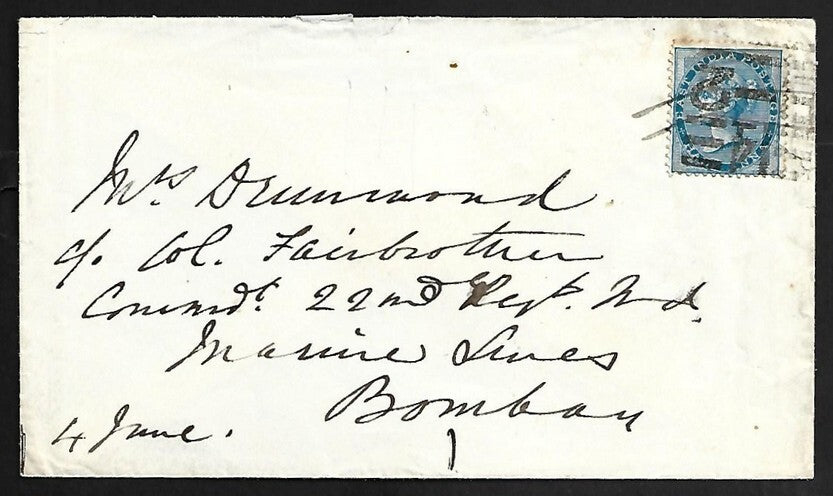 EAST INDIA POSTAGE
Mrs Drummond
c/o. Col. Fairbrother
Commdt. 22nd Regt. N.I.
Marine Lines
Bombay
4 June.
1